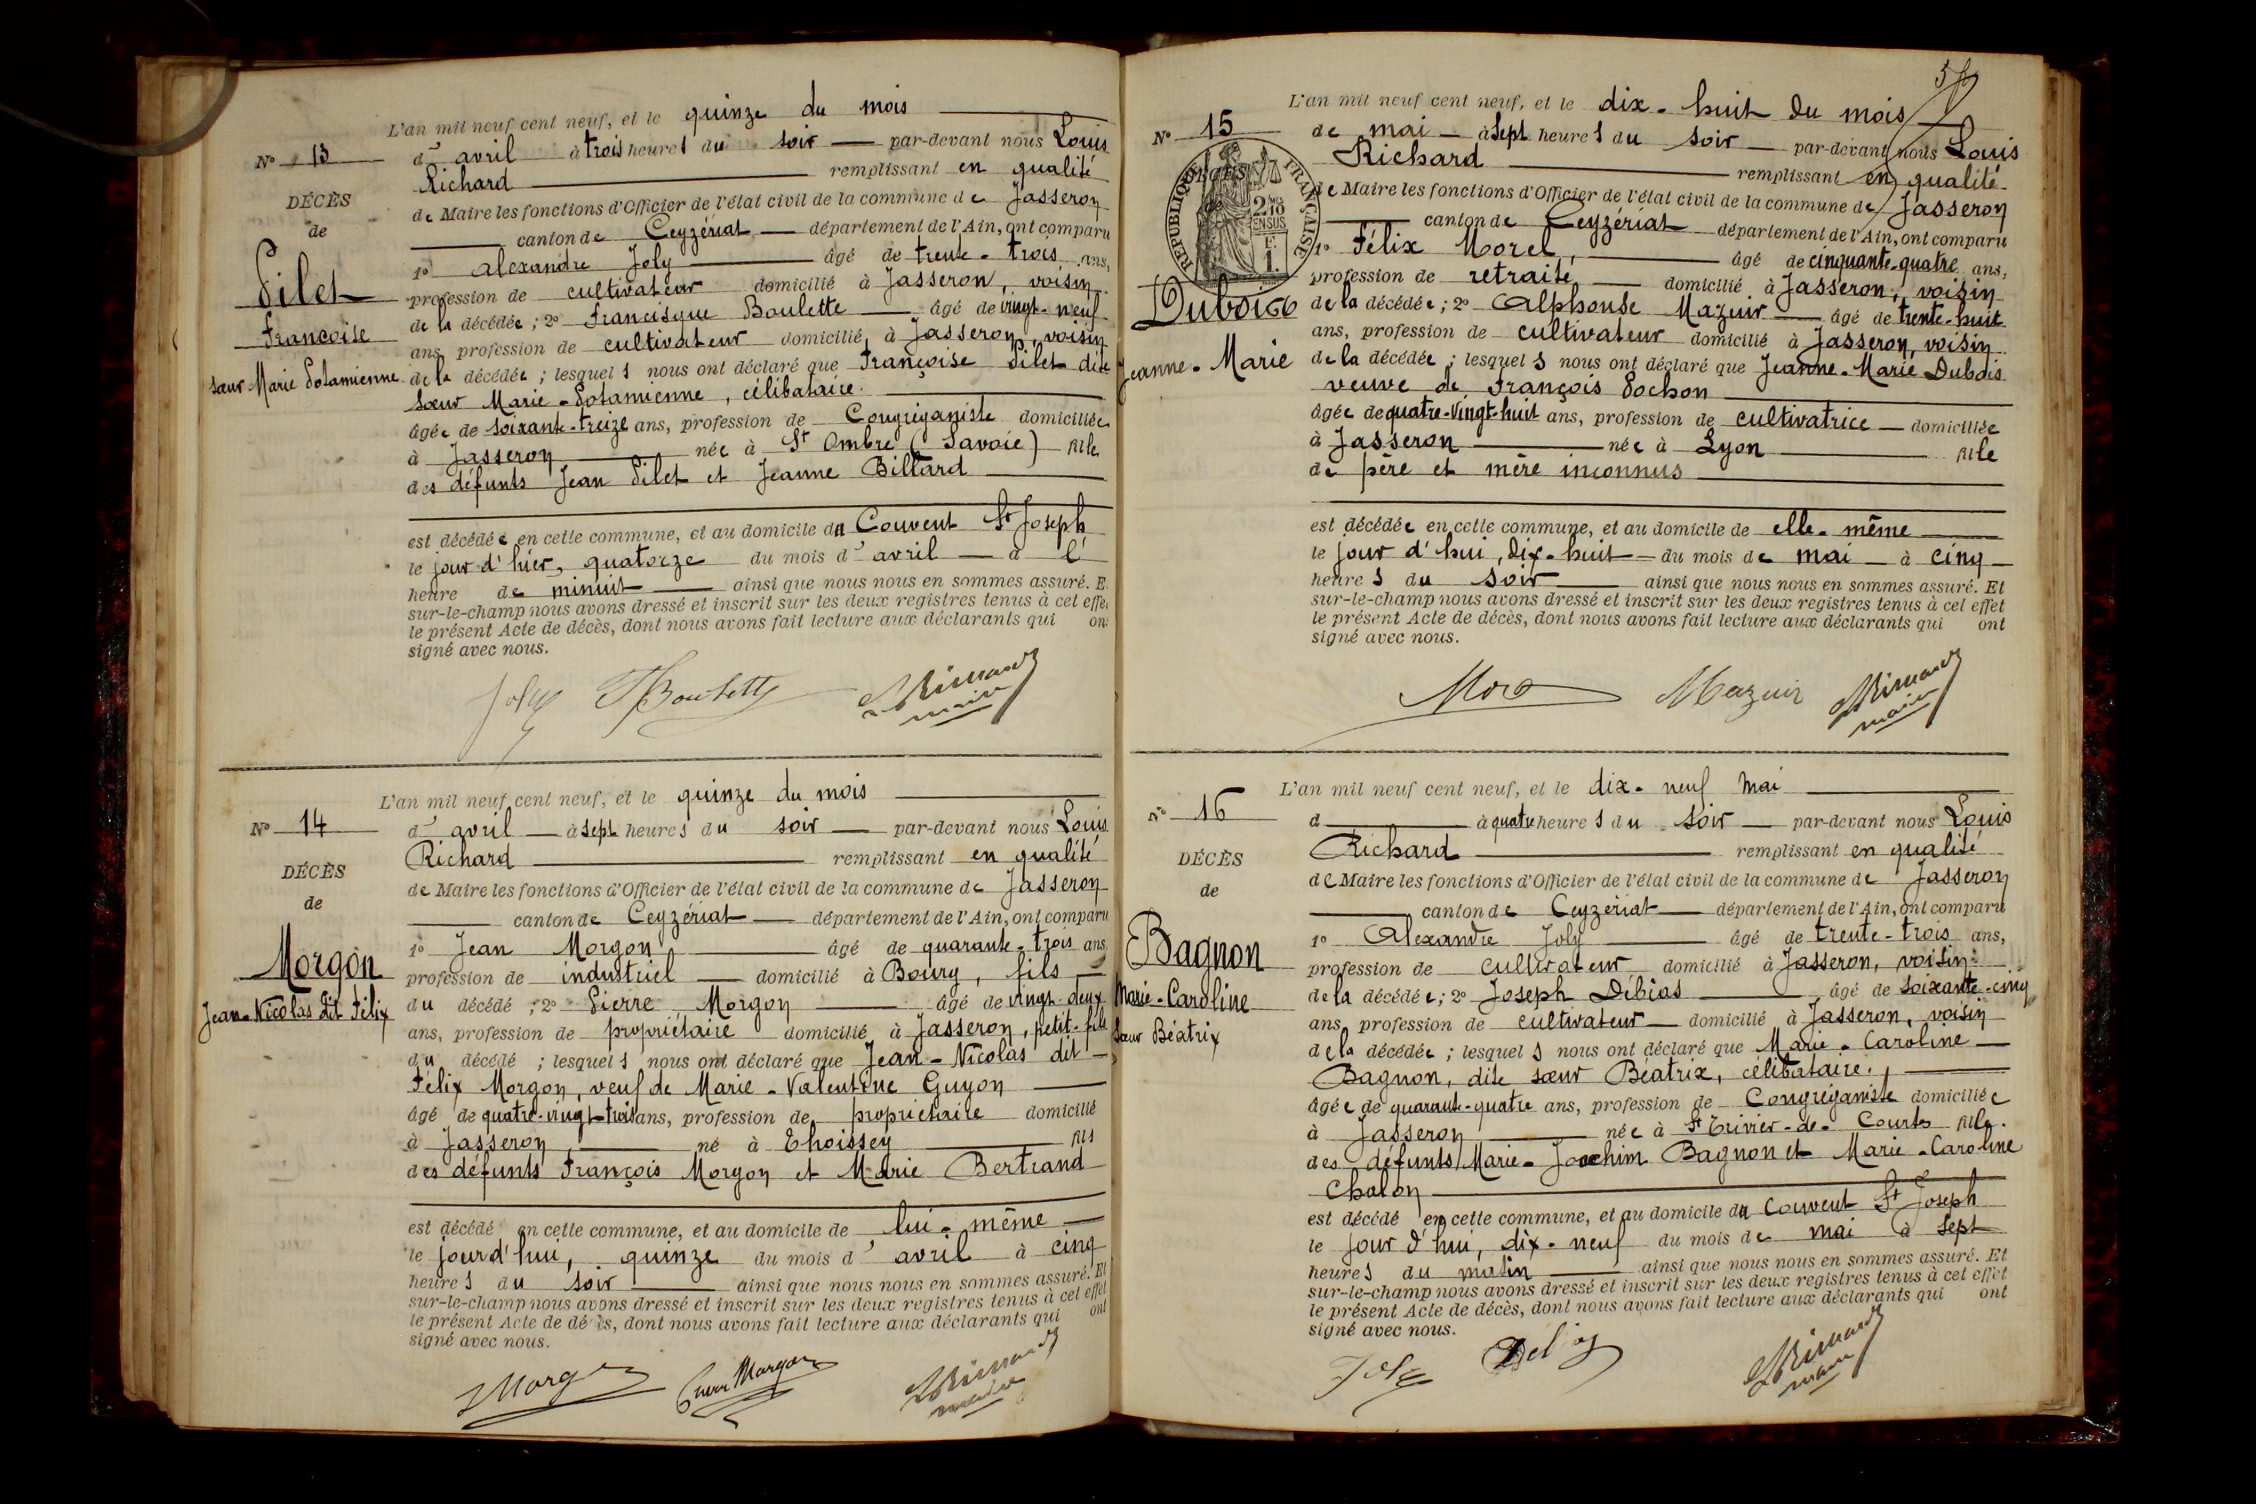 L'an mil neuf cent neuf, et le quinze du mois
N° 13
d' avril à trois heures du soir par-devant nous Louis
Richard remplissant en qualité
DÉCÈS
de Maire les fonctions d'Officier de l'état civil de la commune de Jasseron
de
canton de Ceyzériat département de l'Ain, ont comparu
1° Alexandre Joly âgé de trente-trois ans,
Pilet
profession de cultivateur domicilié à Jasseron, voisin
de la décédée ; 2° Francisque Boulette âgé de vingt-neuf
Françoise
ans, profession de cultivateur domicilié à Jasseron, voisin
sœur Marie Potamienne
de la décédée ; lesquels nous ont déclaré que Françoise Pilet dite
sœur Marie-Potamienne, célibataire.
âgée de soixante-treize ans, profession de Congréganiste domiciliée
à Jasseron née à St Ombre (Savoie) fille
des défunts Jean Pilet et Jeanne Billard
est décédée en cette commune, et au domicile du Couvent St Joseph
le jour d'hier, quatorze du mois d' avril à l'
heure de minuit ainsi que nous nous en sommes assuré. E
sur-le-champ nous avons dressé et inscrit sur les deux registres tenus à cet effet
le présent Acte de décès, dont nous avons fait lecture aux déclarants qui ont
signé avec nous.
Joly Boulette LRichard
maire
L'an mil neuf cent neuf, et le quinze du mois
N° 14
d' avril à sept heures du soir par-devant nous Louis
Richard remplissant en qualité
DÉCÈS
de Maire les fonctions d'Officier de l'état civil de la commune de Jasseron
de
canton de Ceyzériat département de l'Ain, ont comparu
1° Jean Morgon âgé de quarante-trois ans
Morgon
profession de industriel domicilié à Bourg, fils
Jean-Nicolas dit Félix
du décédé ; 2° Pierre Morgon âgé de vingt-deux
ans, profession de propriétaire domicilié à Jasseron, petit-fils
du décédé ; lesquels nous ont déclaré que Jean-Nicolas dit
Félix Morgon, veuf de Marie-Valentine Guyon
âgé de quatre-vingt-trois ans, profession de propriétaire domicilié
à Jasseron né à Thoissey fils
des défunts François Morgon et Marie Bertrand
est décédé en cette commune, et au domicile de lui-même
le jourd'hui, quinze du mois d' avril à cinq
heures du soir ainsi que nous nous en sommes assuré. Et
sur-le-champ nous avons dressé et inscrit sur les deux registres tenus à cet effet
le présent Acte de décès, dont nous avons fait lecture aux déclarants qui ont
signé avec nous.
JMorgon Pierre Morgon LRichard
maire
L'an mil neuf cent neuf, et le dix-huit du mois
N° 15
de mai à sept heures du soir par-devant nous Louis
Richard remplissant en qualité
RÉPUBLIQUE FRANÇAISE
de Maire les fonctions d'Officier de l'état civil de la commune de Jasseron
canton de Ceyzériat département de l'Ain, ont comparu
1° Félix Morel, âgé de cinquante-quatre ans,
profession de retraité domicilié à Jasseron, voisin
Dubois
de la décédée ; 2° Alphonse Mazuir âgé de trente-huit
ans, profession de cultivateur domicilié à Jasseron, voisin
Jeanne-Marie
de la décédée ; lesquels nous ont déclaré que Jeanne-Marie Dubois
veuve de François Pochon
âgée de quatre-vingt-huit ans, profession de cultivatrice domiciliée
à Jasseron née à Lyon fille
de père et mère inconnus
est décédée en cette commune, et au domicile de elle-même
le jour d'hui, dix-huit du mois de mai à cinq
heures du soir ainsi que nous nous en sommes assuré. Et
sur-le-champ nous avons dressé et inscrit sur les deux registres tenus à cet effet
le présent Acte de décès, dont nous avons fait lecture aux déclarants qui ont
signé avec nous.
Morel Mazuir LRichard
maire
L'an mil neuf cent neuf, et le dix-neuf mai
N° 16
d à quatre heures du soir par-devant nous Louis
Richard remplissant en qualité
DÉCÈS
de Maire les fonctions d'Officier de l'état civil de la commune de Jasseron
de
canton de Ceyzériat département de l'Ain, ont comparu
1° Alexandre Joly âgé de trente-trois ans,
Bagnon
profession de cultivateur domicilié à Jasseron, voisin
Marie-Caroline
de la décédée ; 2° Joseph Débias âgé de soixante-cinq
ans, profession de cultivateur domicilié à Jasseron, voisin
Sœur Béatrix
de la décédée ; lesquels nous ont déclaré que Marie-Caroline
Bagnon, dite sœur Béatrix, célibataire.
âgée de quarante-quatre ans, profession de Congréganiste domiciliée
à Jasseron née à St Trivier-de-Courtes fille
des défunts Marie-Joachim Bagnon et Marie-Caroline
Chalon
est décédé en cette commune, et au domicile du Couvent St Joseph
le jour d'hui, dix-neuf du mois de mai à sept
heures du matin ainsi que nous nous en sommes assuré. Et
sur-le-champ nous avons dressé et inscrit sur les deux registres tenus à cet effet
le présent Acte de décès, dont nous avons fait lecture aux déclarants qui ont
signé avec nous.
Joly LRichard
maire